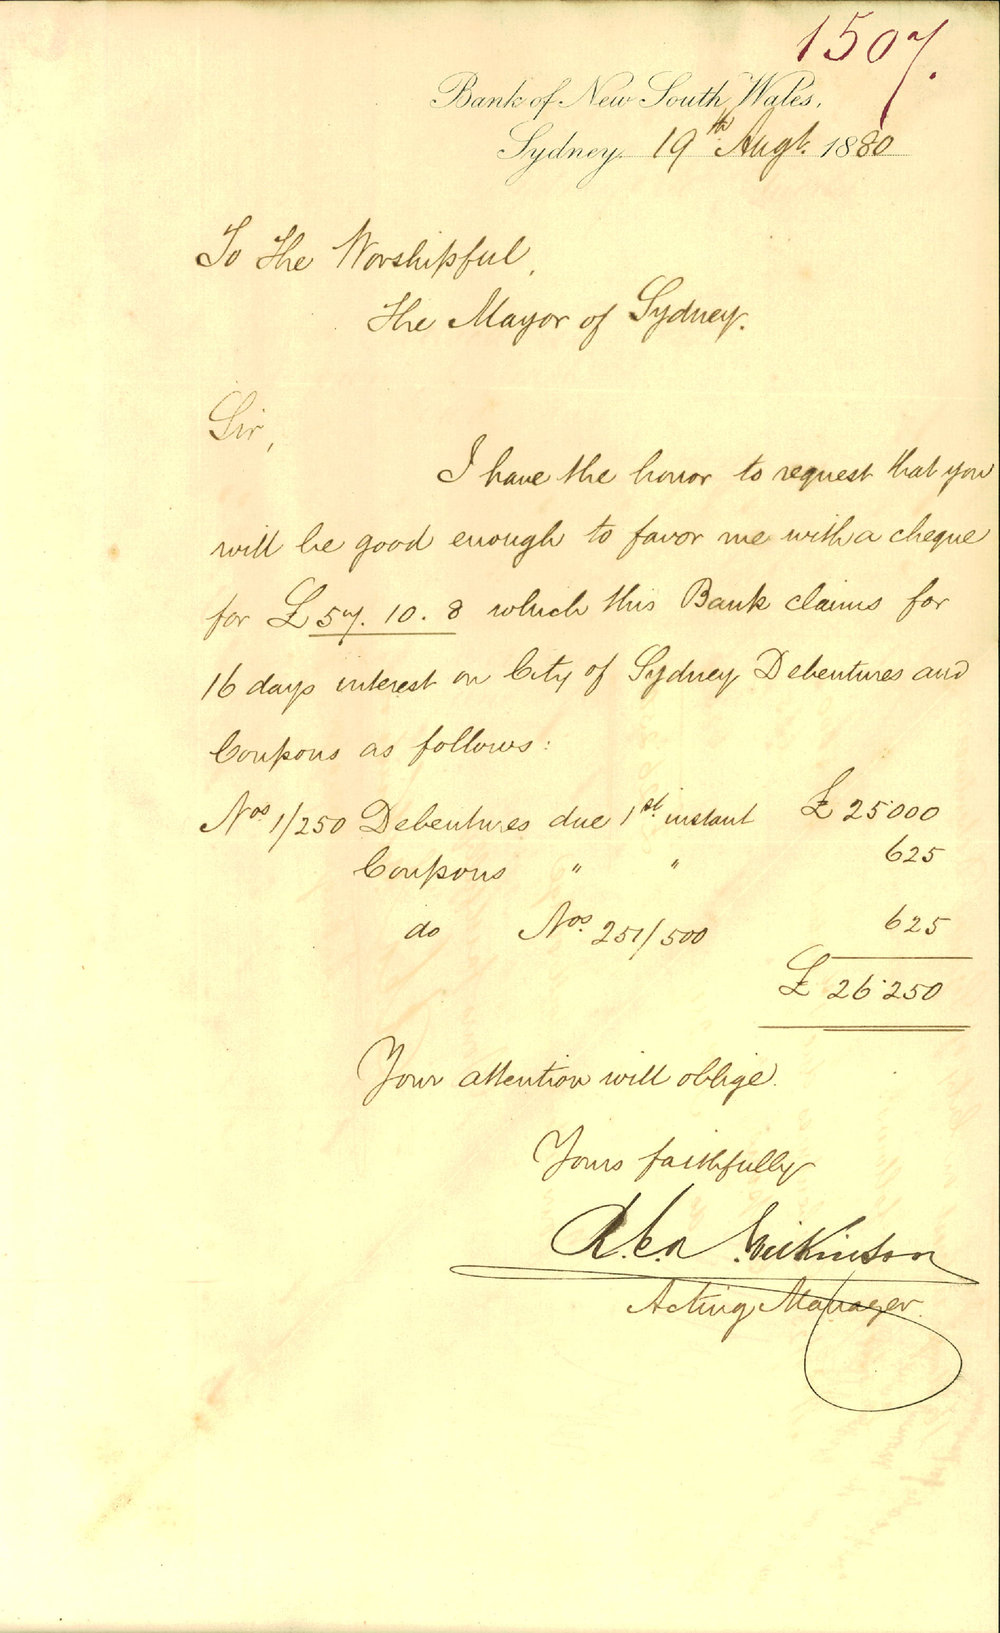 1507.
Bank of New South Wales,
Sydney. 19th Augt. 1880
To the Worshipful,
the Mayor of Sydney.
Sir,
I have the honor to request that you
will be good enough to favor me with a cheque
for £57. 10. 8 which this Bank claims for
16 days interest on City of Sydney Debentures and
Coupons as follows:
Nos. 1/250 Debentures due 1st. instant £25000
Coupons " " 625
do Nos. 251/500 625
£26250
Your attention will oblige.
Yours faithfully
Wilkinson
Acting Manager.